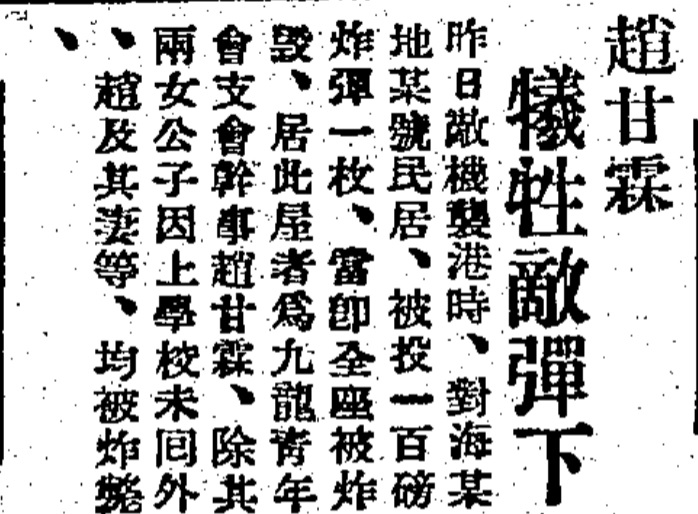 趙甘霖
犠牲敵彈下
昨日敵機襲港時、對海某
地某號民居、被投一百磅
炸彈一枚、當卽全座被炸
毀、居此屋者爲九龍靑年
會支會幹事趙甘霖、除其
兩女公子因上學校未囘外
、趙及其妻等、均被炸斃
、